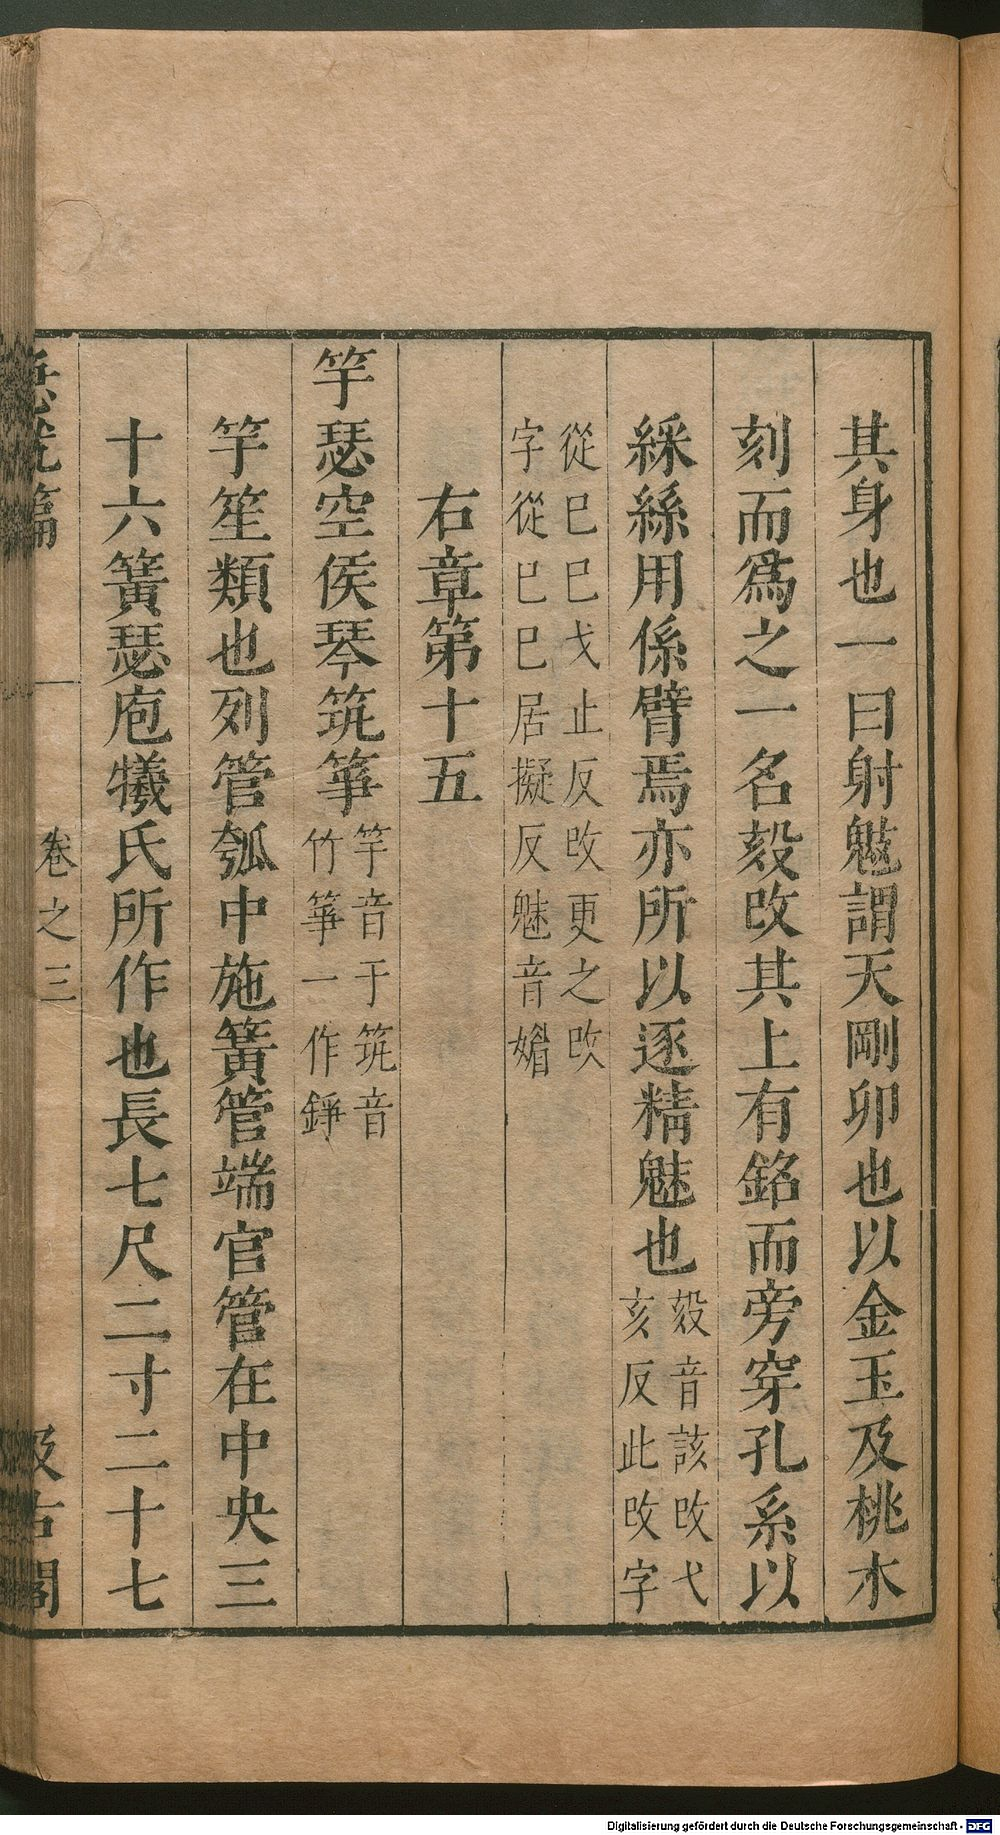 其身也一曰射魃謂天剛卯也以金玉及桃木
刻而爲之一名㱾攺其上有銘而旁穿孔系以
綵絲用係臂焉亦所以逐精魅也㱾音該攺弋
亥反此攺字
從巳巳戈止反攺更之攺
字從己己居擬反魅音媚
右章第十五
竽瑟空侯琴筑箏竽音于筑音
竹箏一作錚
竽笙類也列管瓠中施簧管端官管在中央三
十六簧瑟庖犧氏所作也長七尺二寸二十七
急就篇 卷之三 汲古閣
Digitalisierung gefördert durch die Deutsche Forschungsgemeinschaft - DFG